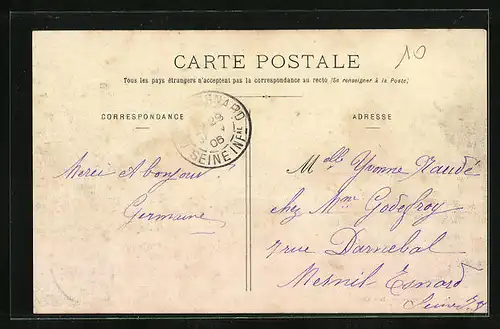 10
CARTE POSTALE
Tous les pays étrangers n'acceptent pas la correspondance au recto (Se renseigner à la Poste)
CORRESPONDANCE
ADRESSE
28
06
SEINE INFRE
Merci et bonjour
Germaine
Melle Yvonne
chez Mme Godefroy
7 rue Darnetal
Mesnil Esnard
Seine Ire